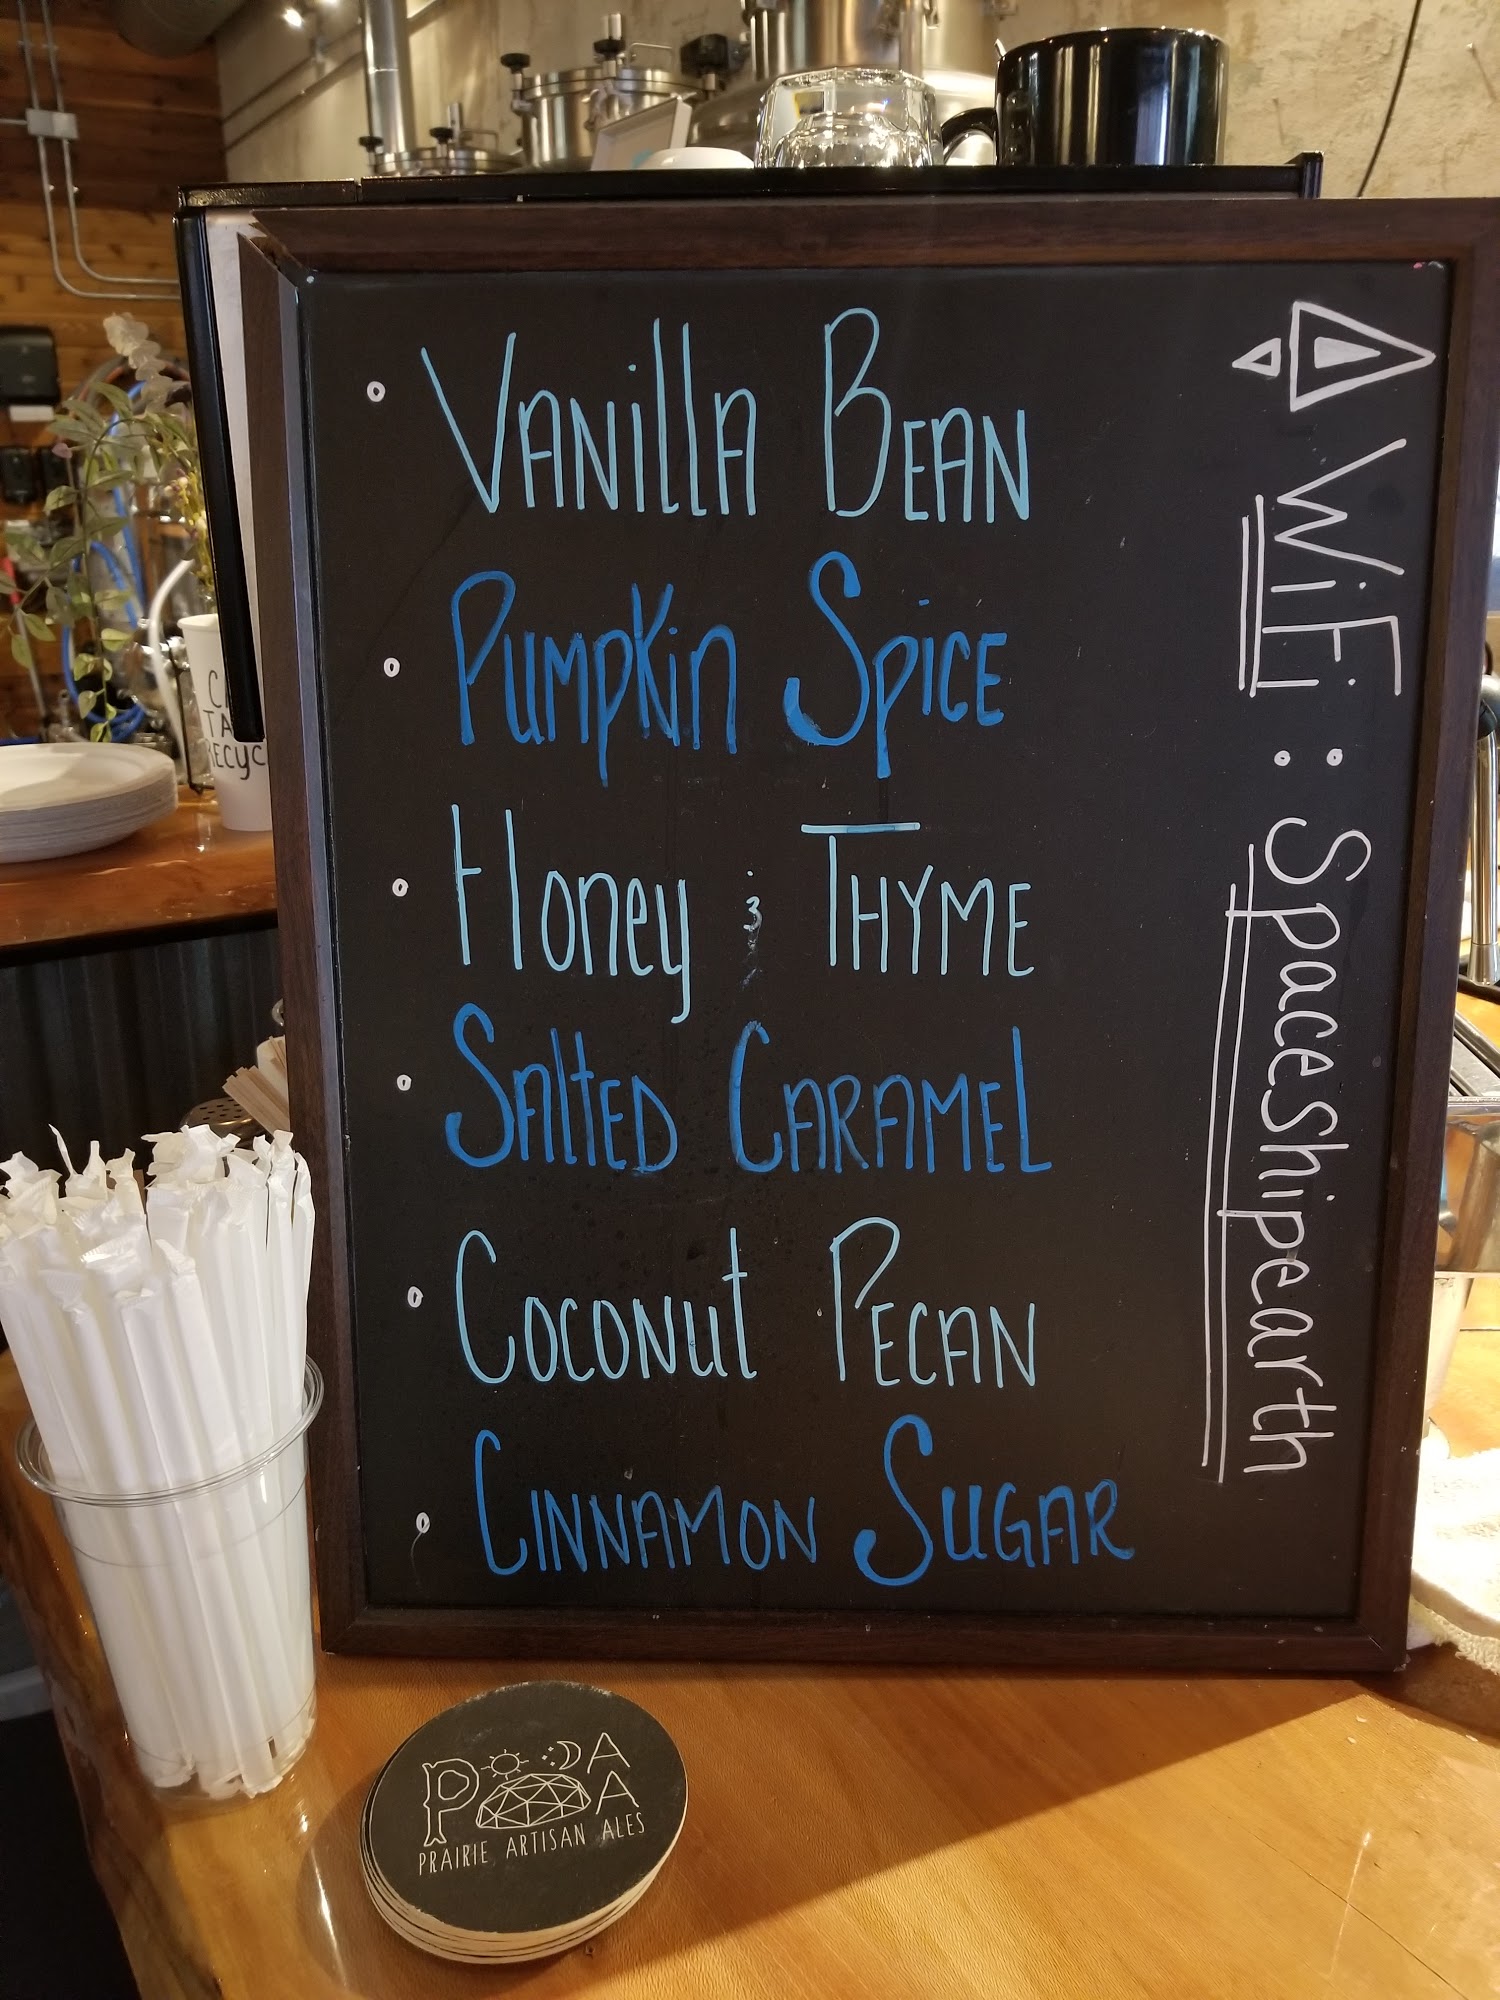 VANIllA BEAN
PUMpKin SpiCE
Honey & THYME
SAltED CARAMEL
COCONut PECAN
CINNAMON SUGAR
WiFi: Spaceshipearth
P A A
PRAIRIE ARTISAN ALES